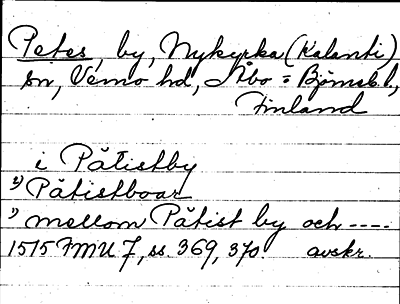 Petes, by, Nykyrka (Kalanti)
sn, Vemo hd, Åbo = Björneb. l.,
Finland
i Påtistby
1) Påtistboar
1) mellom Påtist by och ----
1515 FMU 7, ss. 369, 370. avskr.